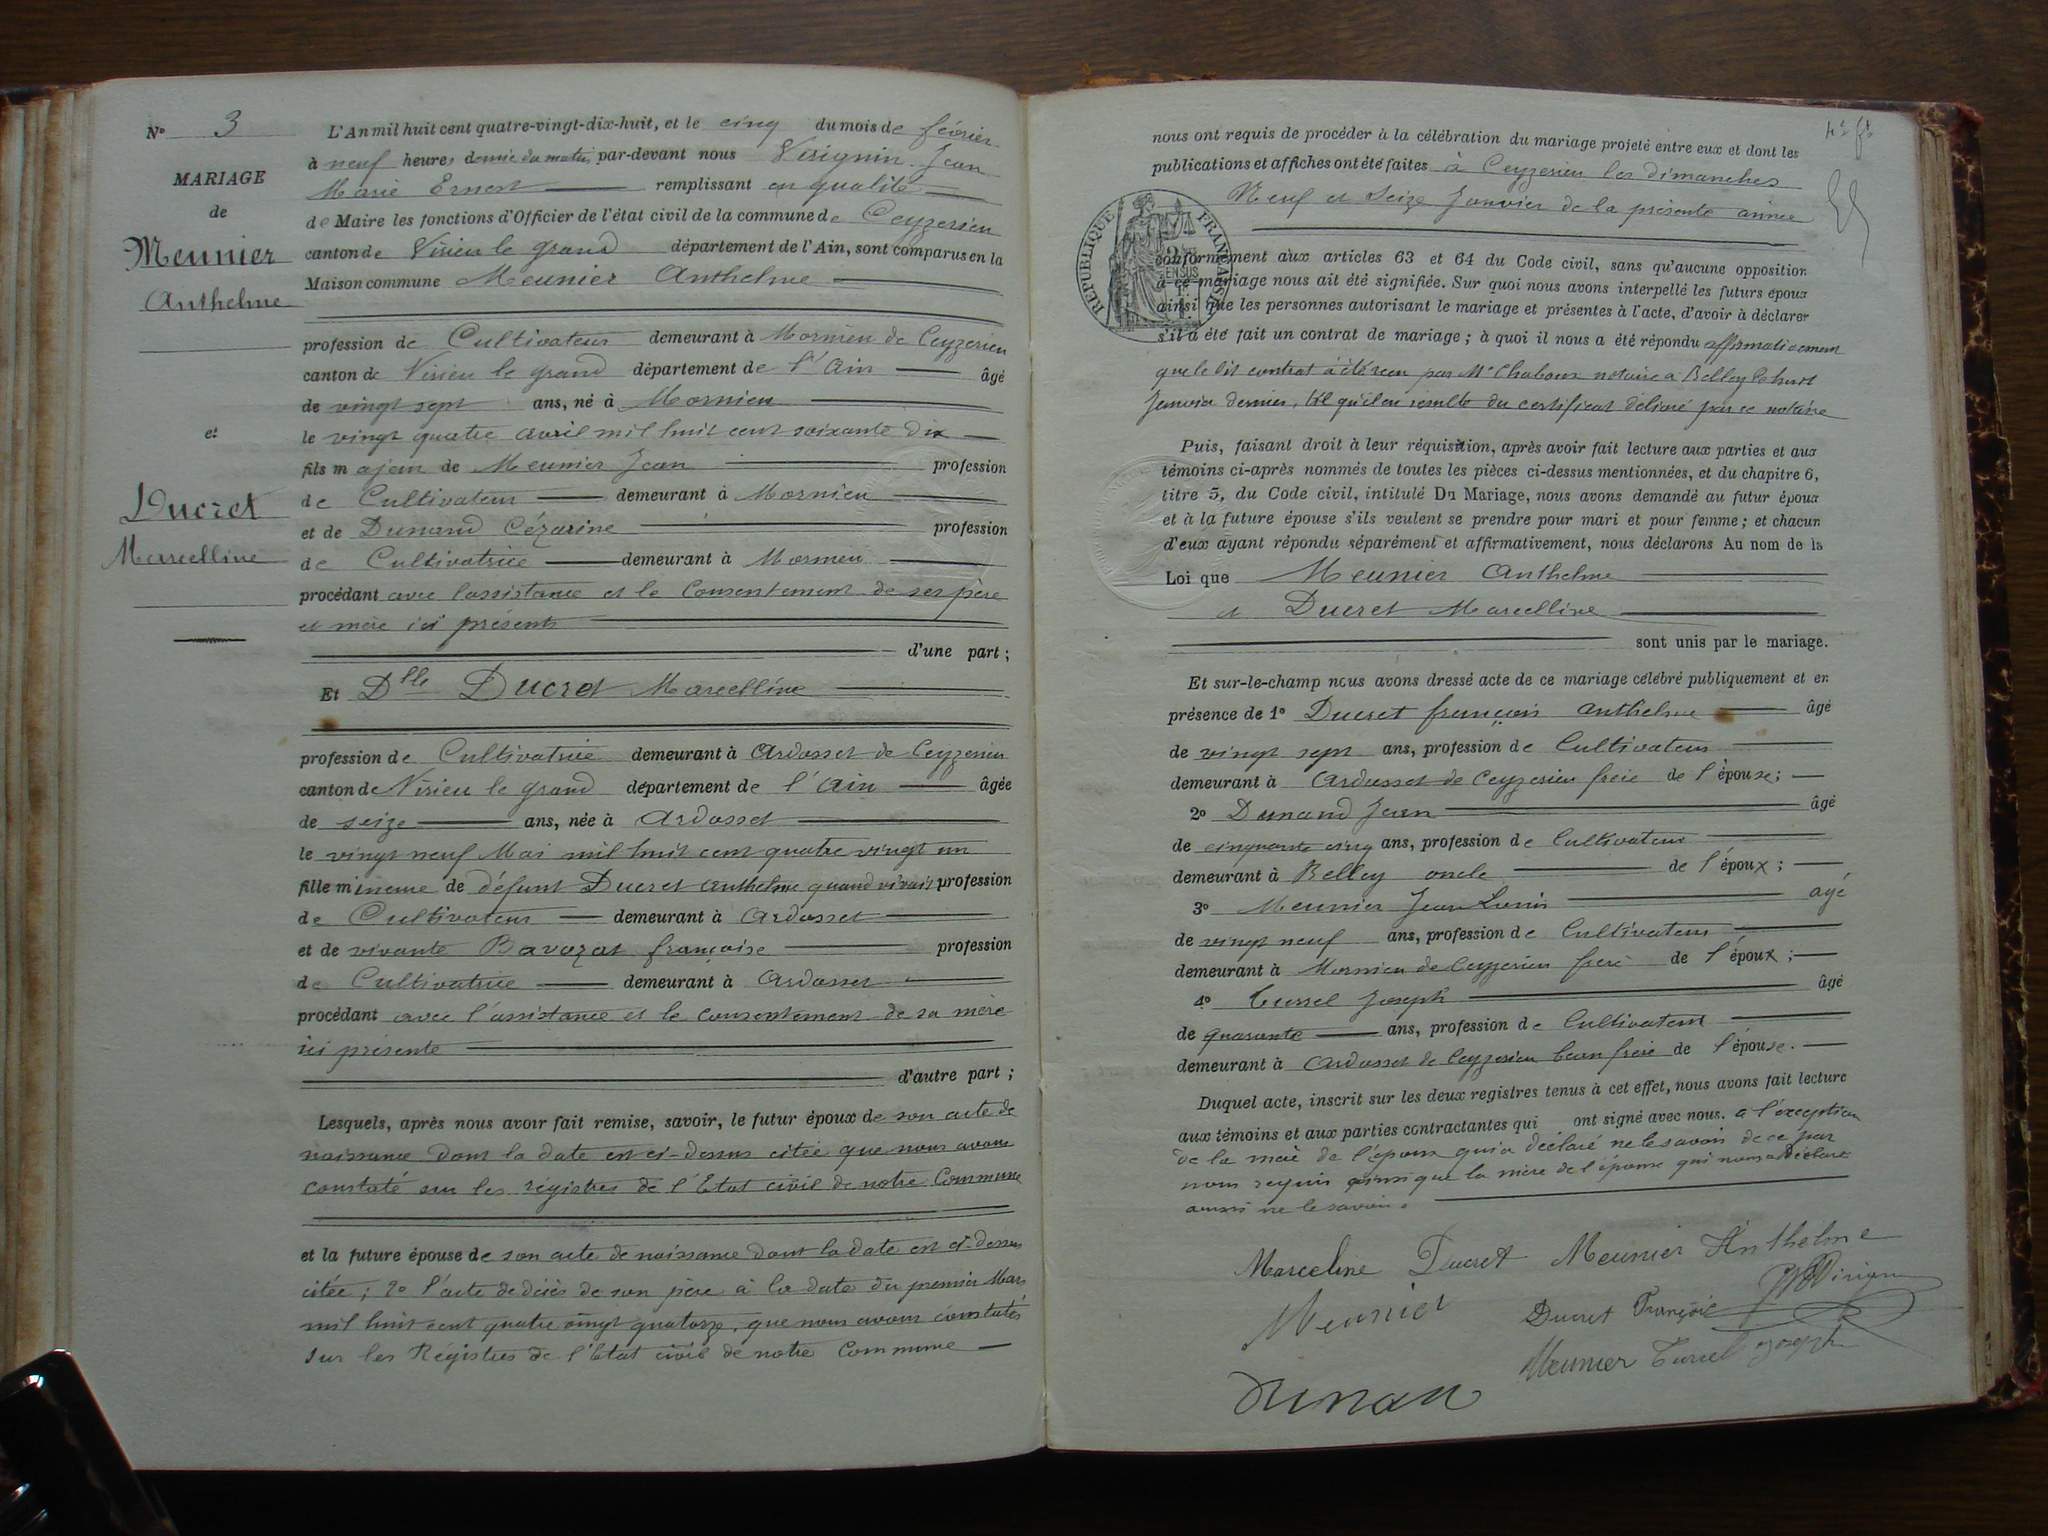 N° 3
MARIAGE
de
Meunier
Anthelme
et
Ducret
Marcelline
L'An mil huit cent quatre-vingt-dix-huit, et le cinq du mois de février
à neuf heures demie du matin par-devant nous Virignin Jean
Marie Ernest remplissant en qualité
de Maire les fonctions d'Officier de l'état civil de la commune de Ceyzerieu
canton de Virieu le grand département de l'Ain, sont comparus en la
Maison commune Meunier Anthelme
profession de Cultivateur demeurant à Mornieu de Ceyzerieu
canton de Virieu le grand département de l'Ain âgé
de vingt sept ans, né à Mornieu
le vingt quatre avril mil huit cent soixante dix
fils majeur de Meunier Jean profession
de Cultivateur demeurant à Mornieu
et de Dunand Cézarine profession
de Cultivatrice demeurant à Mornieu
procédant avec l'assistance et le Consentement de ses père
et mère ici présents
d'une part ;
Et Dlle Ducret Marcelline
profession de Cultivatrice demeurant à Ardosset de Ceyzerieu
canton de Virieu le grand département de l'Ain âgée
de seize ans, née à Ardosset
le vingt neuf Mai mil huit cent quatre vingt un
fille mineure de défunt Ducret Anthelme quand vivait profession
de Cultivateur demeurant à Ardosset
et de vivante Bavozat françoise profession
de Cultivatrice demeurant à Ardosset
procédant avec l'assistance et le consentement de sa mère
ici présente
d'autre part ;
Lesquels, après nous avoir fait remise, savoir, le futur époux de son acte de
naissance dont la date est ci-dessus citée que nous avons
constaté sur les régistres de l'Etat civil de notre Commune
et la future épouse de son acte de naissance dont la date est ci-dessus
citée ; 2° l'acte de décès de son père à la date du premier Mars
mil huit cent quatre vingt quatorze, que nous avons constatés
sur les Régistres de l'Etat civil de notre Commune
nous ont requis de procéder à la célébration du mariage projeté entre eux et dont les
publications et affiches ont été faites à Ceyzerieu les dimanches
Neuf et Seize Janvier de la présente année
RÉPUBLIQUE FRANÇAISE
conformément aux articles 63 et 64 du Code civil, sans qu'aucune opposition
à ce mariage nous ait été signifiée. Sur quoi nous avons interpellé les futurs époux
ainsi que les personnes autorisant le mariage et présentes à l'acte, d'avoir à déclarer
s'il a été fait un contrat de mariage ; à quoi il nous a été répondu affirmativement
que le dit contrat a été reçu par Me Chaboux notaire à Belley le huit
Janvier dernier, tel qu'il en resulte du certificat délivré par ce notaire
Puis, faisant droit à leur réquisition, après avoir fait lecture aux parties et aux
témoins ci-après nommés de toutes les pièces ci-dessus mentionnées, et du chapitre 6,
titre 5, du Code civil, intitulé Du Mariage, nous avons demandé au futur époux
et à la future épouse s'ils veulent se prendre pour mari et pour femme ; et chacun
d'eux ayant répondu séparément et affirmativement, nous déclarons Au nom de la
Loi que Meunier Anthelme
et Ducret Marcelline
sont unis par le mariage.
Et sur-le-champ nous avons dressé acte de ce mariage célébré publiquement et en
présence de 1° Ducret françois Anthelme âgé
de vingt sept ans, profession de Cultivateur
demeurant à Ardosset de Ceyzerieu frère de l'épouse ;
2° Dunand Jean âgé
de cinquante cinq ans, profession de Cultivateur
demeurant à Belley oncle de l'époux ;
3° Meunier Jean Louis agé
de vingt neuf ans, profession de Cultivateur
demeurant à Mornieu de Ceyzerieu frère de l'époux ;
4° Turrel Joseph âgé
de quarante ans, profession de Cultivateur
demeurant à Ardosset de Ceyzerieu beau frère de l'épouse.
Duquel acte, inscrit sur les deux registres tenus à cet effet, nous avons fait lecture
aux témoins et aux parties contractantes qui ont signé avec nous. a l'exception
de la mère de l'époux qui a déclaré ne le savoir de ce par
nous requis ainsi que la mère de l'épouse qui nous a déclaré
aussi ne le savoir.
Marceline Ducret Meunier Anthelme
Meunier Ducret François Virignin
Meunier Turrel Joseph
Dunan